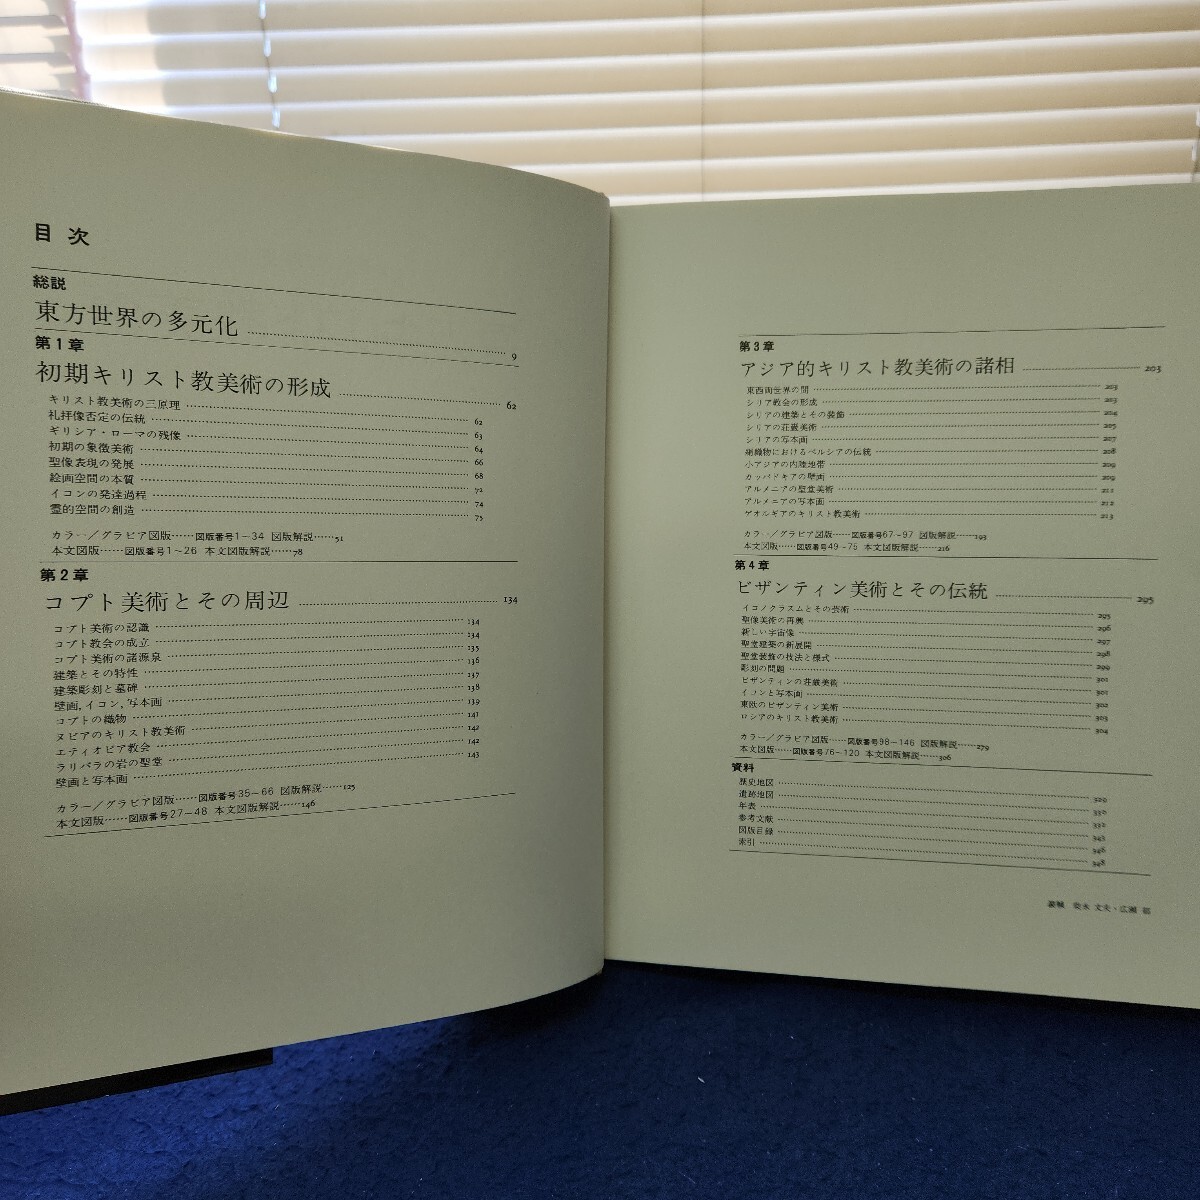 目次
総説
東方世界の多元化 9
第1章
初期キリスト教美術の形成 62
キリスト教美術の三原理 62
礼拝像否定の伝統 63
ギリシア・ローマの残像 64
初期の象徴美術 66
聖像表現の発展 68
絵画空間の本質 72
イコンの発達過程 74
霊的空間の創造 75
カラー／グラビア図版……図版番号1－34 図版解説……51
本文図版……図版番号1～26 本文図版解説……78
第2章
コプト美術とその周辺 134
コプト美術の認識 134
コプト教会の成立 134
コプト美術の諸源泉 135
建築とその特性 136
建築彫刻と墓碑 137
壁画，イコン，写本画 138
コプトの織物 139
ヌビアのキリスト教美術 141
エティオピア教会 142
ラリベラの岩の聖堂 142
壁画と写本画 143
カラー／グラビア図版……図版番号35－66 図版解説……125
本文図版……図版番号27－48 本文図版解説……146
第3章
アジア的キリスト教美術の諸相 203
東西両世界の間 203
シリア教会の形成 203
シリアの建築とその装飾 204
シリアの荘厳美術 205
シリアの写本画 207
絹織物におけるペルシアの伝統 208
小アジアの内陸地帯 209
カッパドキアの壁画 209
アルメニアの聖堂美術 211
アルメニアの写本画 212
ゲオルギアのキリスト教美術 213
カラー／グラビア図版……図版番号67－97 図版解説……193
本文図版……図版番号49－75 本文図版解説……216
第4章
ビザンティン美術とその伝統 295
イコノクラスムとその芸術 295
聖像美術の再興 296
新しい宇宙像 297
聖堂建築の新展開 298
聖堂装飾の技法と様式 299
彫刻の問題 301
ビザンティンの荘厳美術 301
イコンと写本画 302
東欧のビザンティン美術 303
ロシアのキリスト教美術 304
カラー／グラビア図版……図版番号98－146 図版解説……279
本文図版……図版番号76－120 本文図版解説……306
資料
歴史地図 329
遺跡地図 330
年表 332
参考文献 343
図版目録 346
索引 348